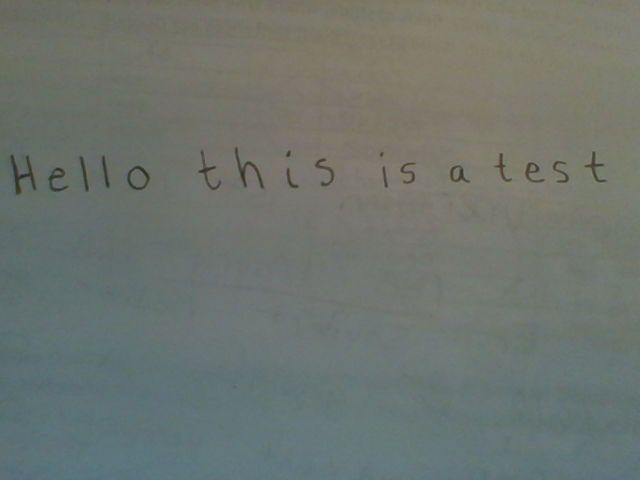 Hello this is a test